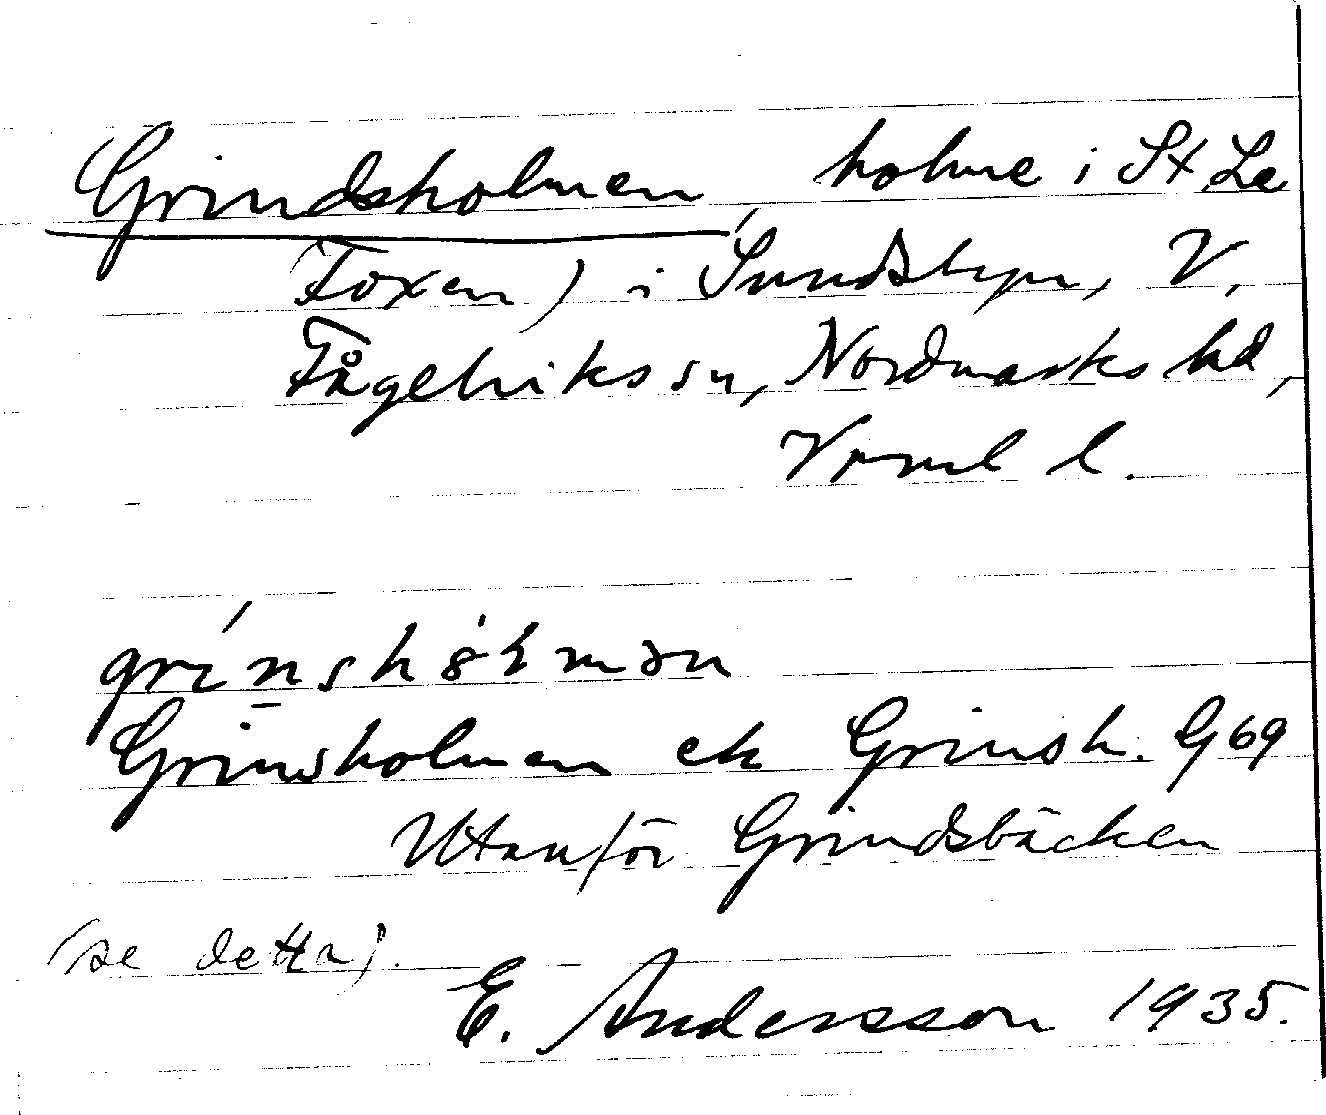 Grindsholmen, holme i St Le
Foxen) i Sundsbyn, V.
Fågelviks sn, Nordmarks hd,
Vrml l.
Grinsholmen ek Grinsh. G69
Utanför Grindsbäcken
(se detta).
E. Andersson 1935.